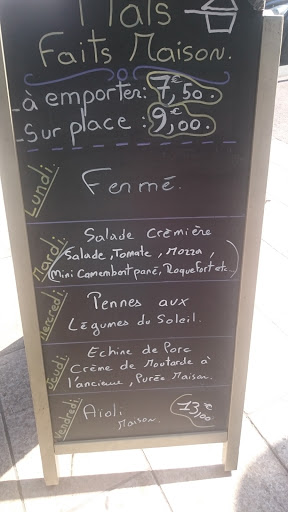 Plats
Faits Maison.
- à emporter: 7,€50.
- Sur place: 9,€00.
Lundi: Fermé.
Mardi: Salade Crèmière
(Salade, Tomate, Mozza,
mini Camembert pané, Roquefort etc...)
Mercredi: Pennes aux
Légumes du Soleil.
Jeudi: Echine de Porc
Crème de Moutarde à
l'ancienne, Purée Maison.
Vendredi: Aïoli 13,€00.
Maison.